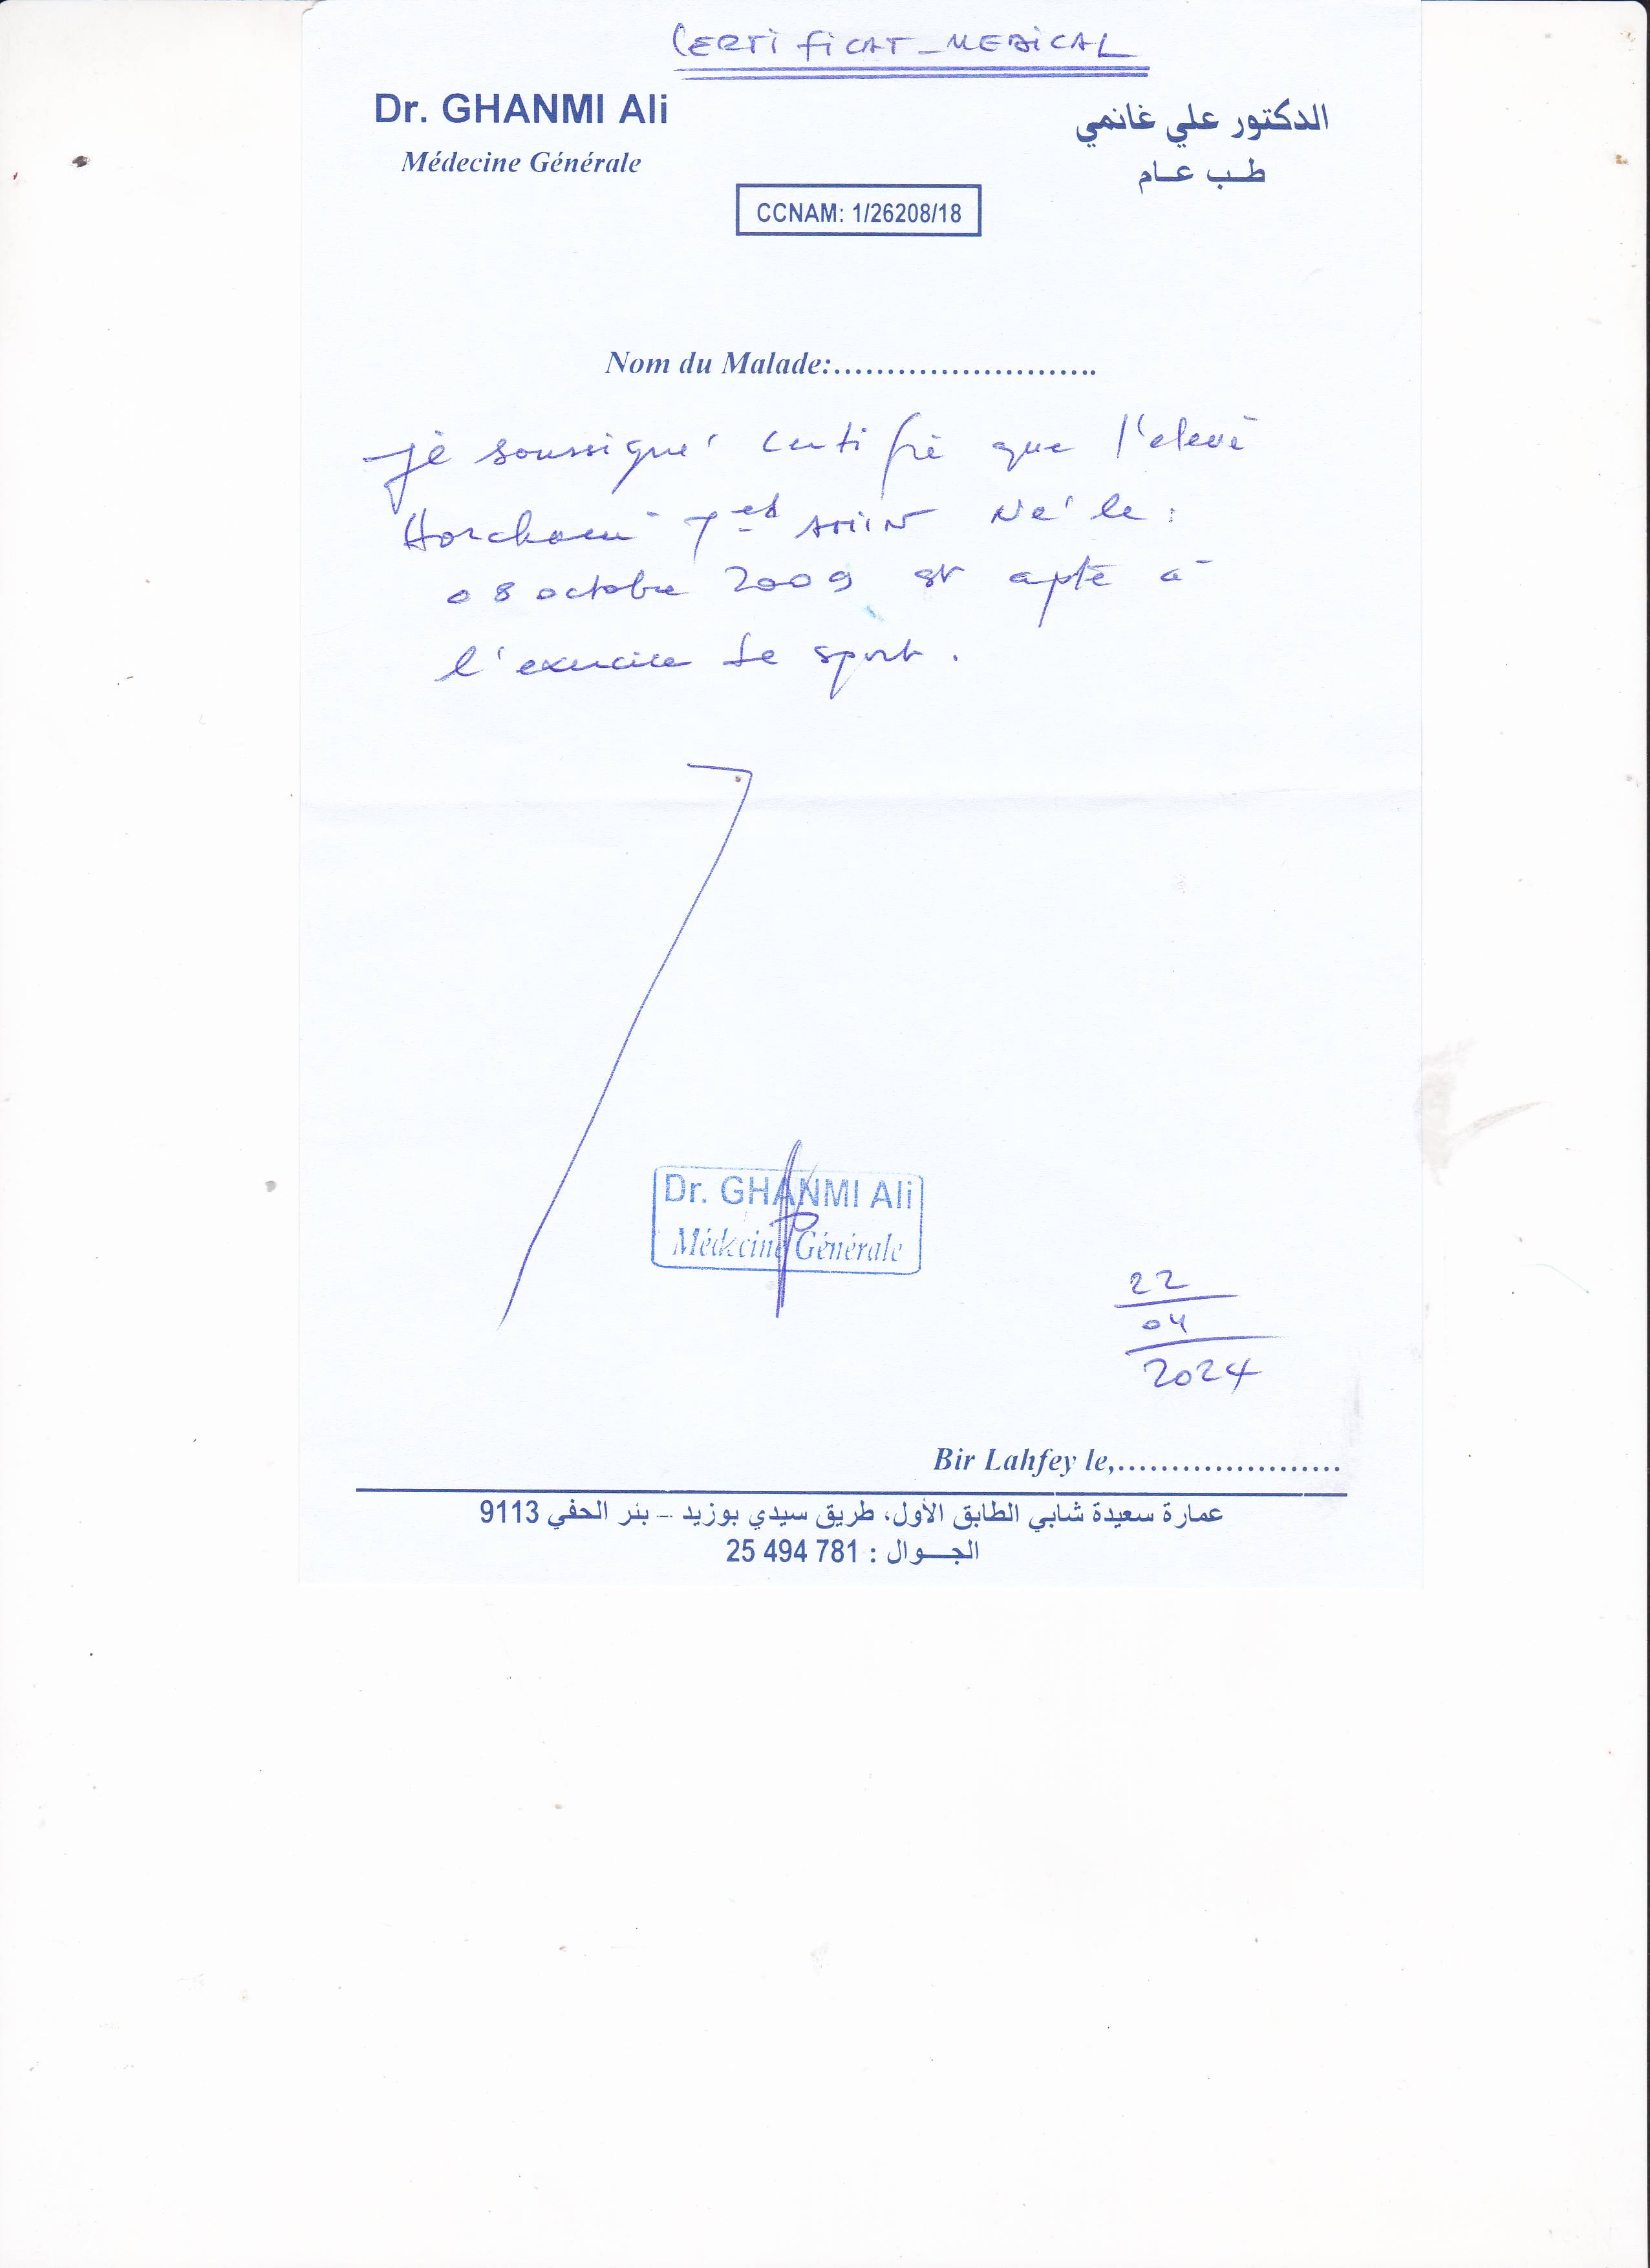 CERTIFICAT_MEDICAL
Dr. GHANMI Ali
الدكتور علي غانمي
Médecine Générale
طب عام
CCNAM: 1/26208/18
Nom du Malade:...........................
Je soussigné certifie que l'eleve
Né le :
08 octobre 2009 est apte à
l'exercice de sport.
Dr. GHANMI Ali
Médecine Générale
22
04
2024
Bir Lahfey le,......................
عمارة سعيدة شابي الطابق الأول، طريق سيدي بوزيد – بئر الحفي 9113
الجوال : 25 494 781